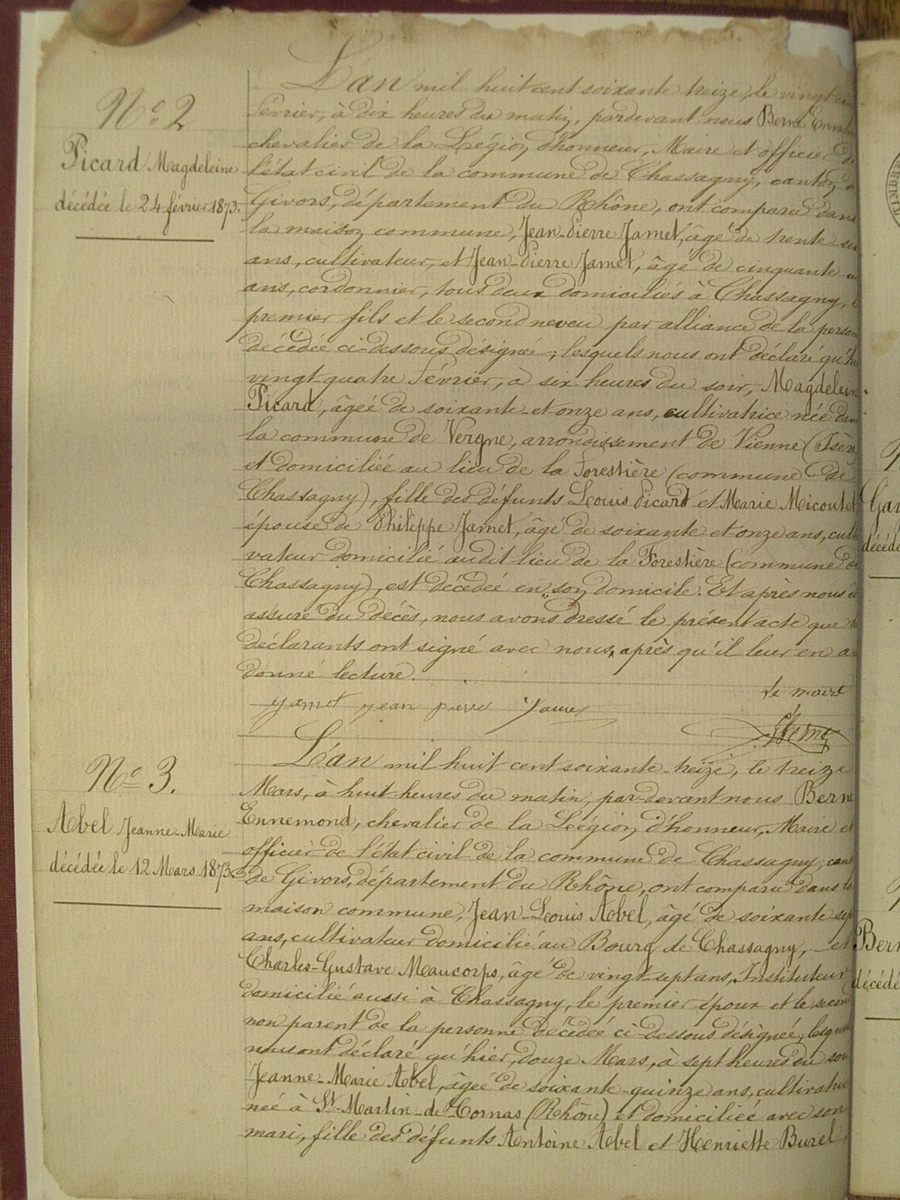 L'an mil huit cent soixante treize, le vingt
N° 2
février, à dix heures du matin, pardevant nous Berne
chevalier de la Légion d'honneur, Maire et officier
Picard Magdeleine
l'état civil de la commune de Chassagny, canton
décédée le 24 février 1873.
Givors, département du Rhône, ont comparu dans
la maison commune, Jean-Pierre Jamet, âgé de trente
ans, cultivateur, et Jean-Pierre Jamet, âgé de cinquante
ans, cordonnier, tous deux domiciliés à Chassagny,
premier fils et le second neveu par alliance de la person
décédée ci-dessous désignée, lesquels nous ont déclaré qu'h
vingt-quatre février, à six heures du soir, Magdelein
Picard, âgée de soixante-et-onze ans, cultivatrice née dan
la commune de Vergne, arrondissement de Vienne (Isère
et domiciliée au lieu de la Forestière (commune de
Chassagny), fille des défunts Louis Picard et Marie Micoulet
épouse de Philippe Jamet, âgé de soixante et onze ans, culti
vateur domicilié audit lieu de la Forestière (commune de
Chassagny), est décédée en son domicile. Et après nous
assuré du décès, nous avons dressé le présent acte que
déclarants ont signé avec nous, après qu'il leur en a
donné lecture.
Le maire
yamet jean pierre
Berne
L'an mil huit cent soixante-treize, le treize
N° 3.
Mars, à huit heures du matin, par-devant nous Berne
Ennemond, chevalier de la Légion d'honneur, Maire et
Abel Jeanne-Marie
officier de l'état civil de la commune de Chassagny, can
décédée le 12 Mars 1873
de Givors, département du Rhône, ont comparu dans la
maison commune, Jean-Louis Abel, âgé de soixante sep
ans, cultivateur domicilié au Bourg de Chassagny, et
Charles-Gustave Maucorps, âgé de vingt-sept ans, Instituteur
domicilié aussi à Chassagny, le premier époux et le secon
non parent de la personne décédée ci-dessous désignée, lesque
nous ont déclaré qu'hier, douze Mars, à sept heures du soir
Jeanne-Marie Abel, âgée de soixante-quinze ans, cultivatri
née à St Martin-de-Cornas (Rhône) et domiciliée avec son
mari, fille des défunts Antoine Abel et Henriette Burel,
Gar
décédé
Bern
décédé